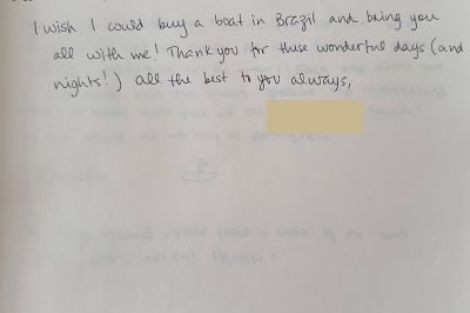 I wish I could buy a boat in Brazil and bring you
all with me! Thank you for these wonderful days (and
nights!) all the best to you always,